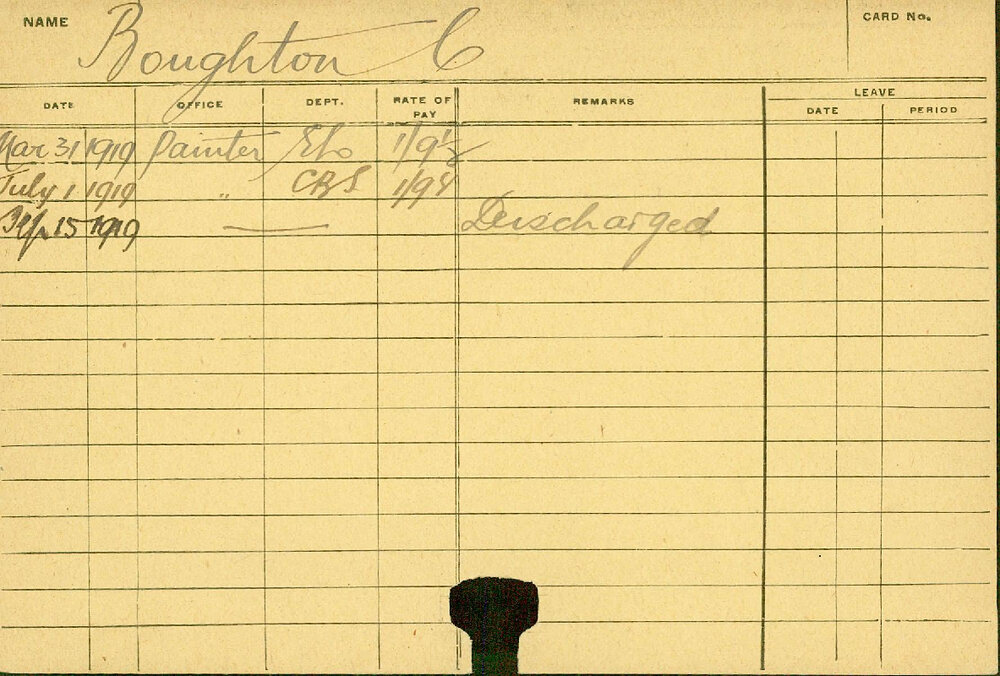 NAME Boughton C CARD No.
DATE OFFICE DEPT. RATE OF PAY REMARKS LEAVE
DATE PERIOD
Mar 31 1919 Painter 1/9½
July 1 1919 " CBS
Sep 15 1919 — Discharged